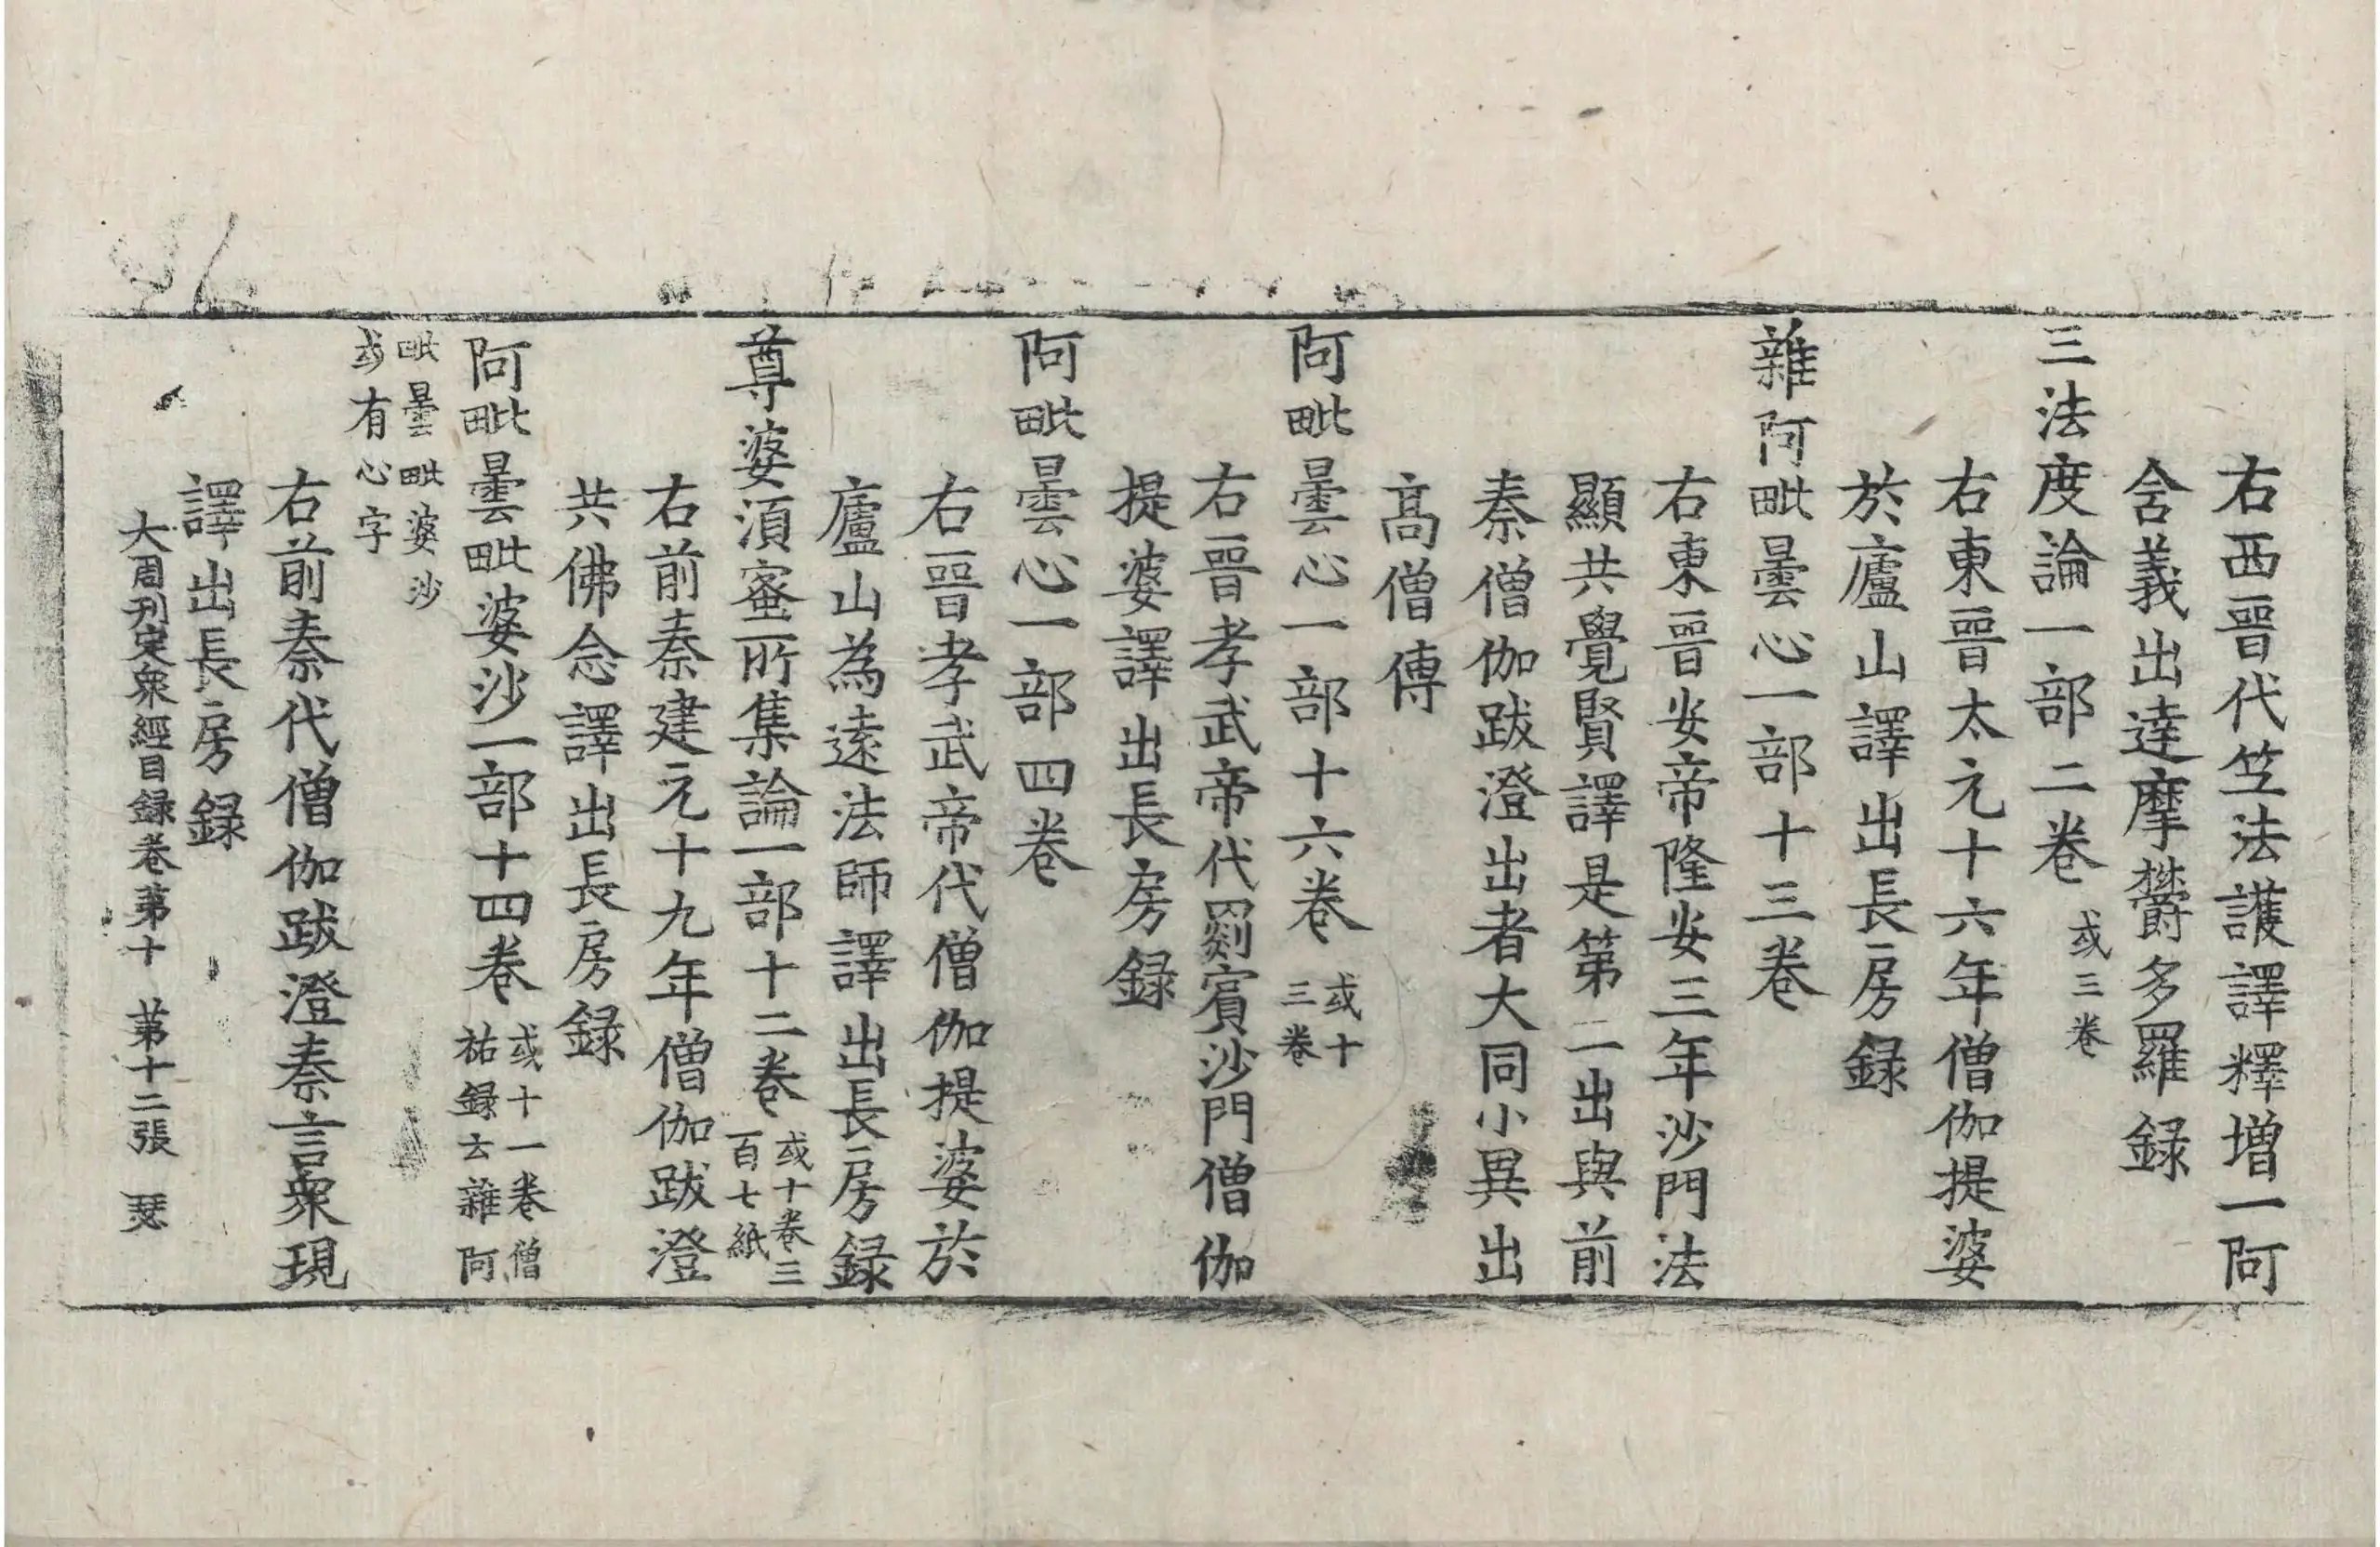 右西晉代竺法護譯釋増一阿
含義出達摩欝多羅録
三法度論一部二卷 或三卷
右東晉太元十六年僧伽提婆
於廬山譯出長房録
雜阿毗曇心一部十三卷
右東晉安帝隆安三年沙門法
顯共覺賢譯是第二出與前
秦僧伽跋澄出者大同小異出
髙僧傳
阿毗曇心一部十六卷 或十三卷
右晉孝武帝代罽賓沙門僧伽
提婆譯出長房録
阿毗曇心一部四卷
右晉孝武帝代僧伽提婆於
廬山為遠法師譯出長房録
尊婆須蜜所集論一部十二卷 或十卷三百七紙
右前秦建元十九年僧伽跋澄
共佛念譯出長房録
阿毗曇毗婆沙一部十四卷 或十一卷僧祐録云雜阿
毗曇毗婆沙或有心字
右前秦代僧伽跋澄秦言衆現
譯出長房録
大周刋定衆經目録卷第十 第十二張 瑟